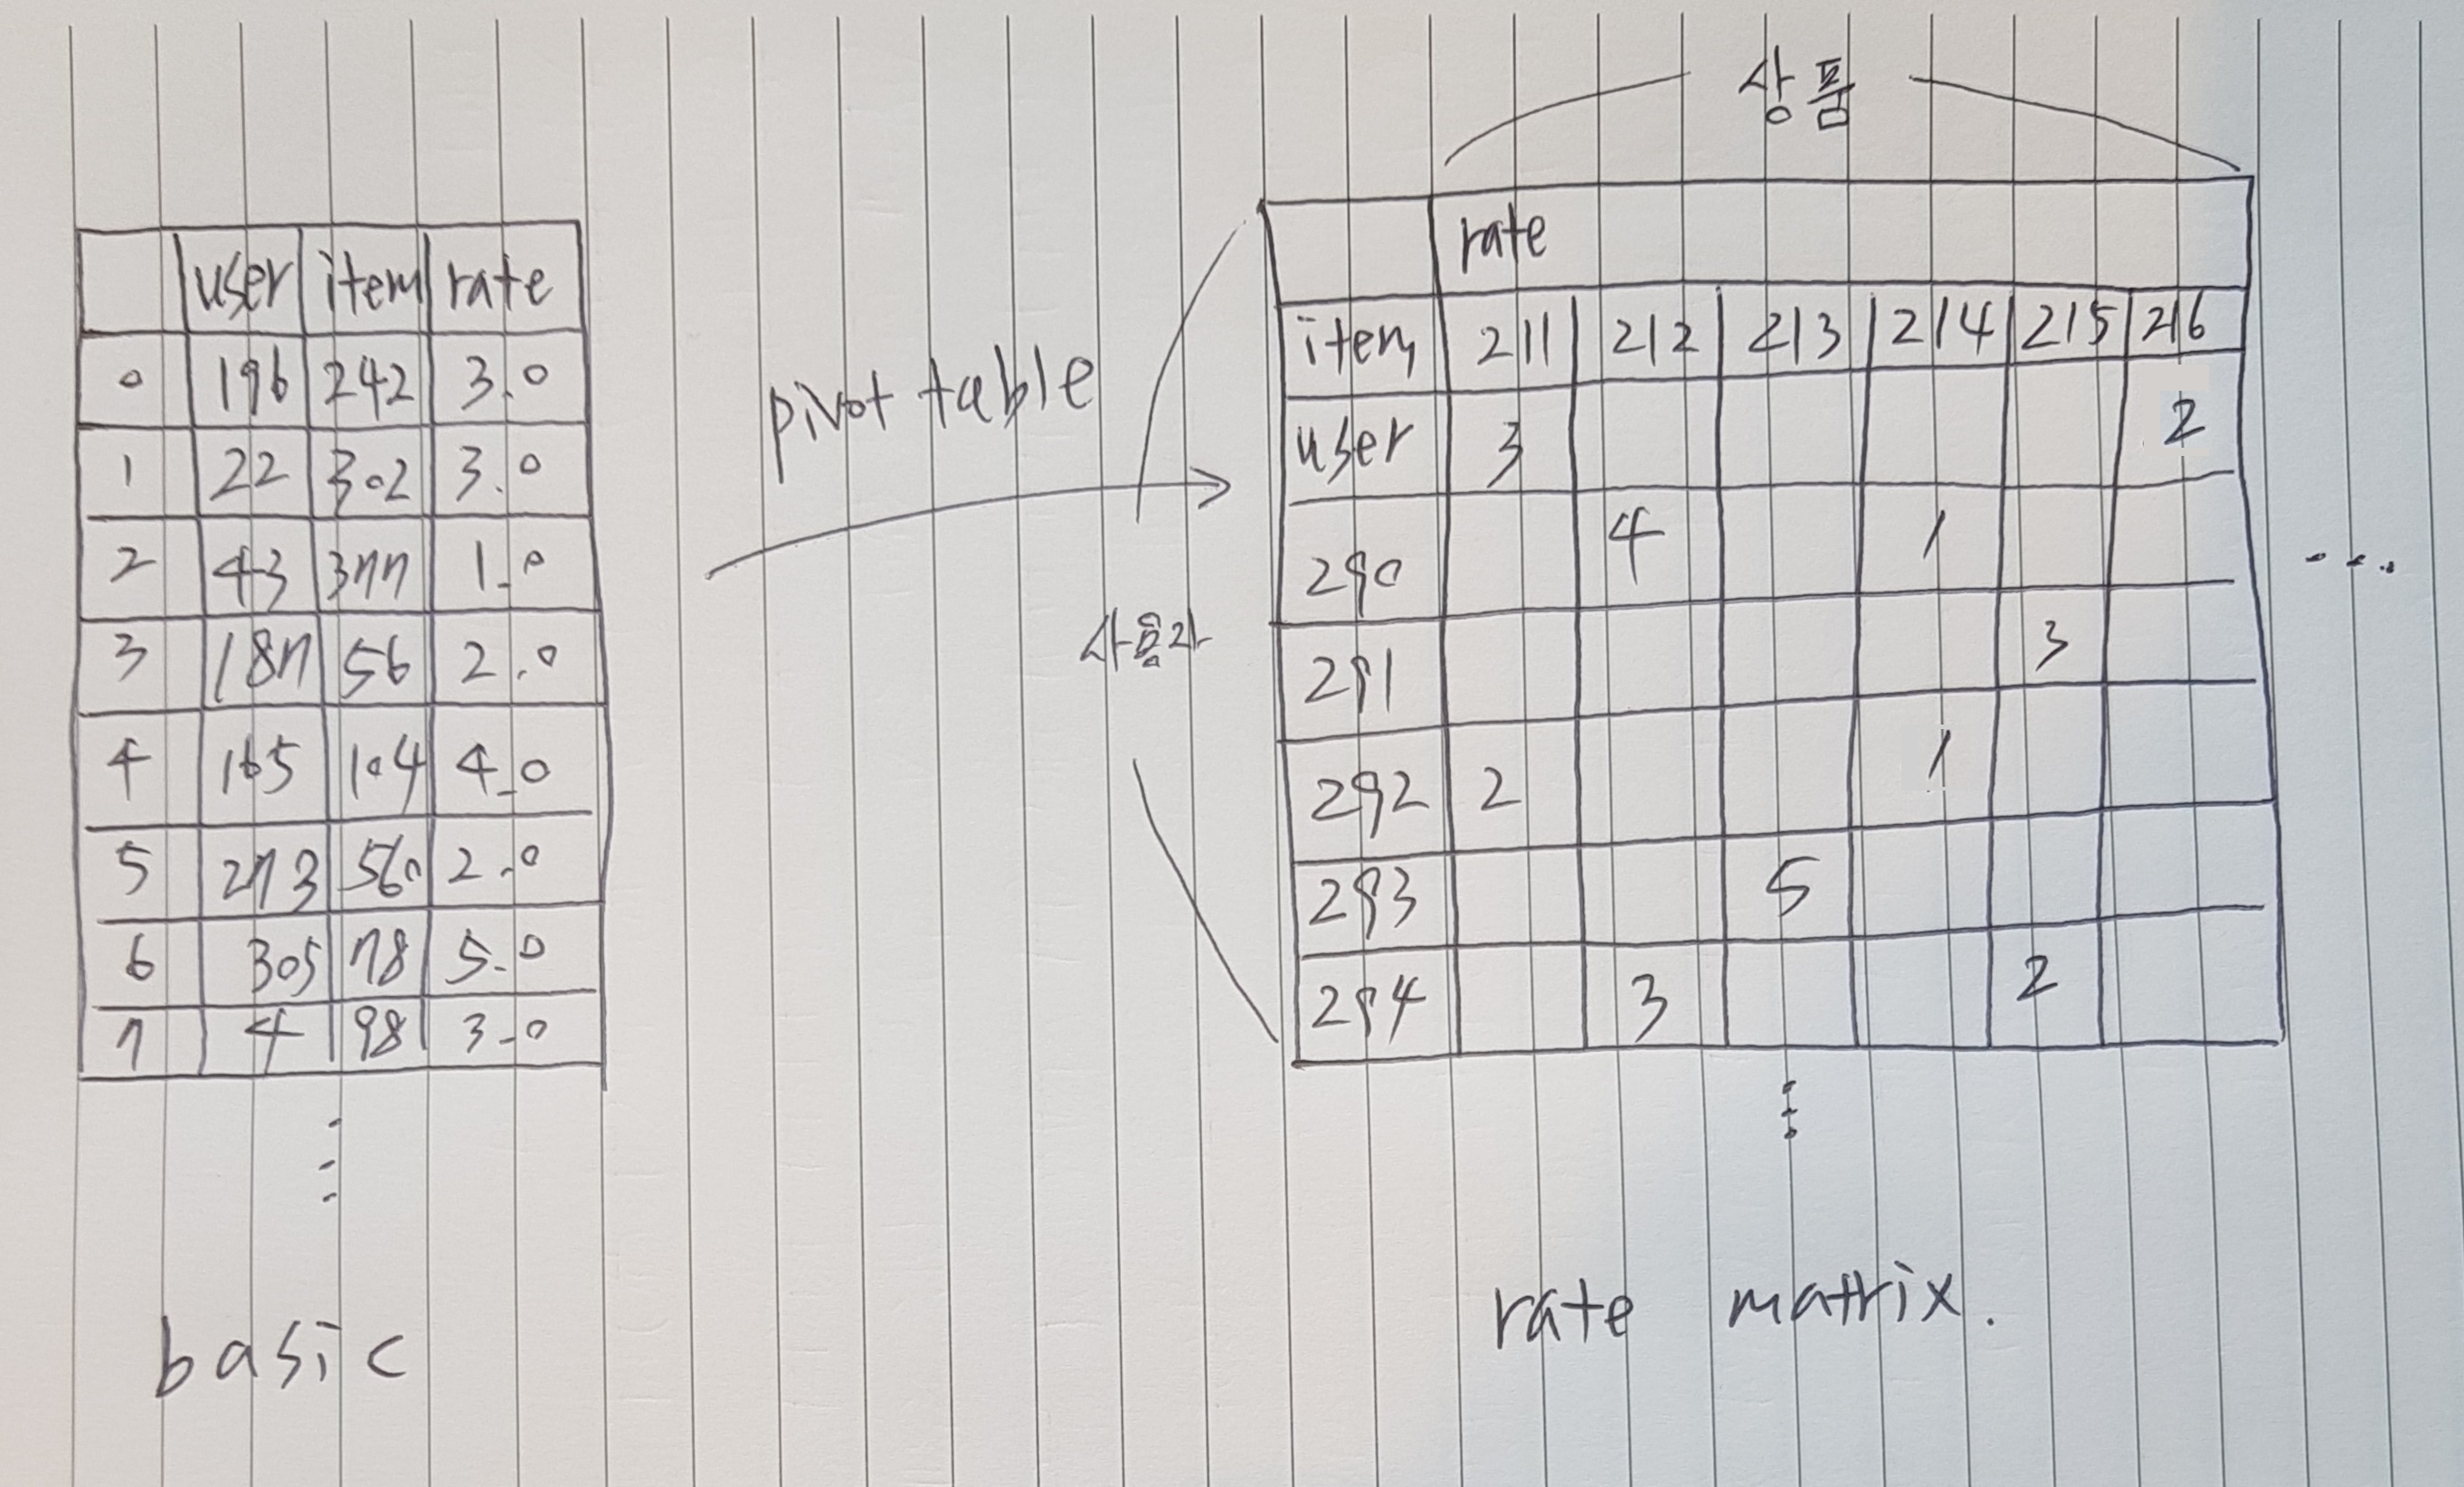 상품
user item rate
0 196 242 3.0
1 22 302 3.0
2 43 377 1.0
3 187 56 2.0
4 165 104 4.0
5 273 560 2.0
6 305 78 5.0
7 4 98 3.0
basic
pivot table
사용자
rate
item 211 212 213 214 215 216
user 3 2
290 4 1
291 3
292 2 1
293 5
294 3 2
rate matrix.